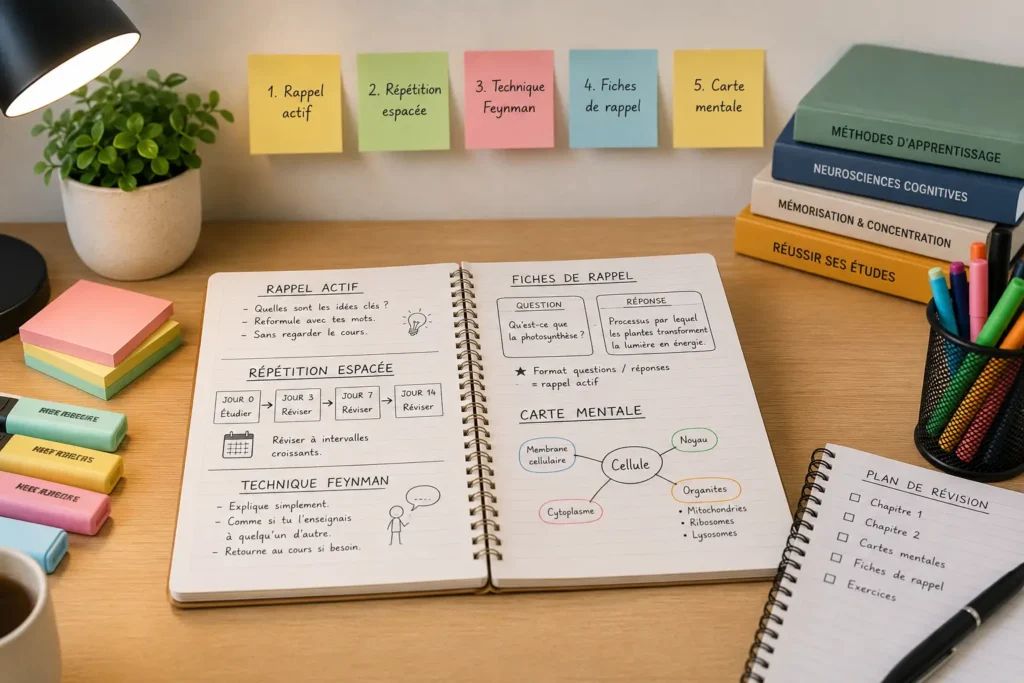 1. Rappel
actif
2. Répétition
espacée
3. Technique
Feynman
4. Fiches
de rappel
5. Carte
mentale
MÉTHODES D'APPRENTISSAGE
NEUROSCIENCES COGNITIVES
MÉMORISATION & CONCENTRATION
RÉUSSIR SES ÉTUDES
RAPPEL ACTIF
- Quelles sont les idées clés ?
- Reformule avec tes mots.
- Sans regarder le cours.
RÉPÉTITION ESPACÉE
JOUR 0
Étudier
JOUR 3
Réviser
JOUR 7
Réviser
JOUR 14
Réviser
Réviser à intervalles
croissants.
TECHNIQUE FEYNMAN
- Explique simplement.
- Comme si tu l'enseignais
à quelqu'un d'autre.
- Retourne au cours si besoin.
FICHES DE RAPPEL
QUESTION
Qu'est-ce que
la photosynthèse ?
RÉPONSE
Processus par lequel
les plantes transforment
la lumière en énergie.
★ Format questions / réponses
= rappel actif
CARTE MENTALE
Membrane
cellulaire
Noyau
Cellule
Cytoplasme
Organites
• Mitochondries
• Ribosomes
• Lysosomes
PLAN DE RÉVISION
Chapitre 1
Chapitre 2
Cartes mentales
Fiches de rappel
Exercices